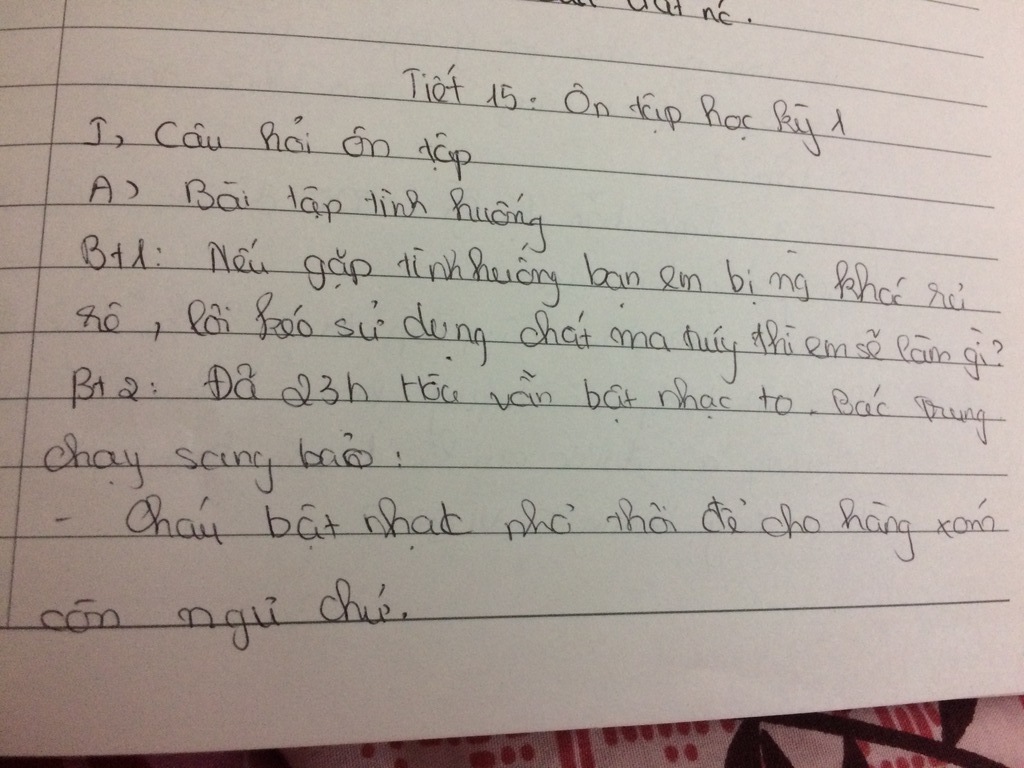 đất nc.
Tiết 15: Ôn tập học kỳ 1
I, Câu hỏi ôn tập
A) Bài tập tình huống
Bt1: Nếu gặp tình huống bạn em bị ng khác rủ
rê, lôi kéo sử dụng chất ma túy thì em sẽ làm gì?
Bt 2: Đã 23h Hòa vẫn bật nhạc to. Bác Trung
chạy sang bảo:
- Cháu bật nhạt nhỏ thôi để cho hàng xóm
còn ngủ chứ.